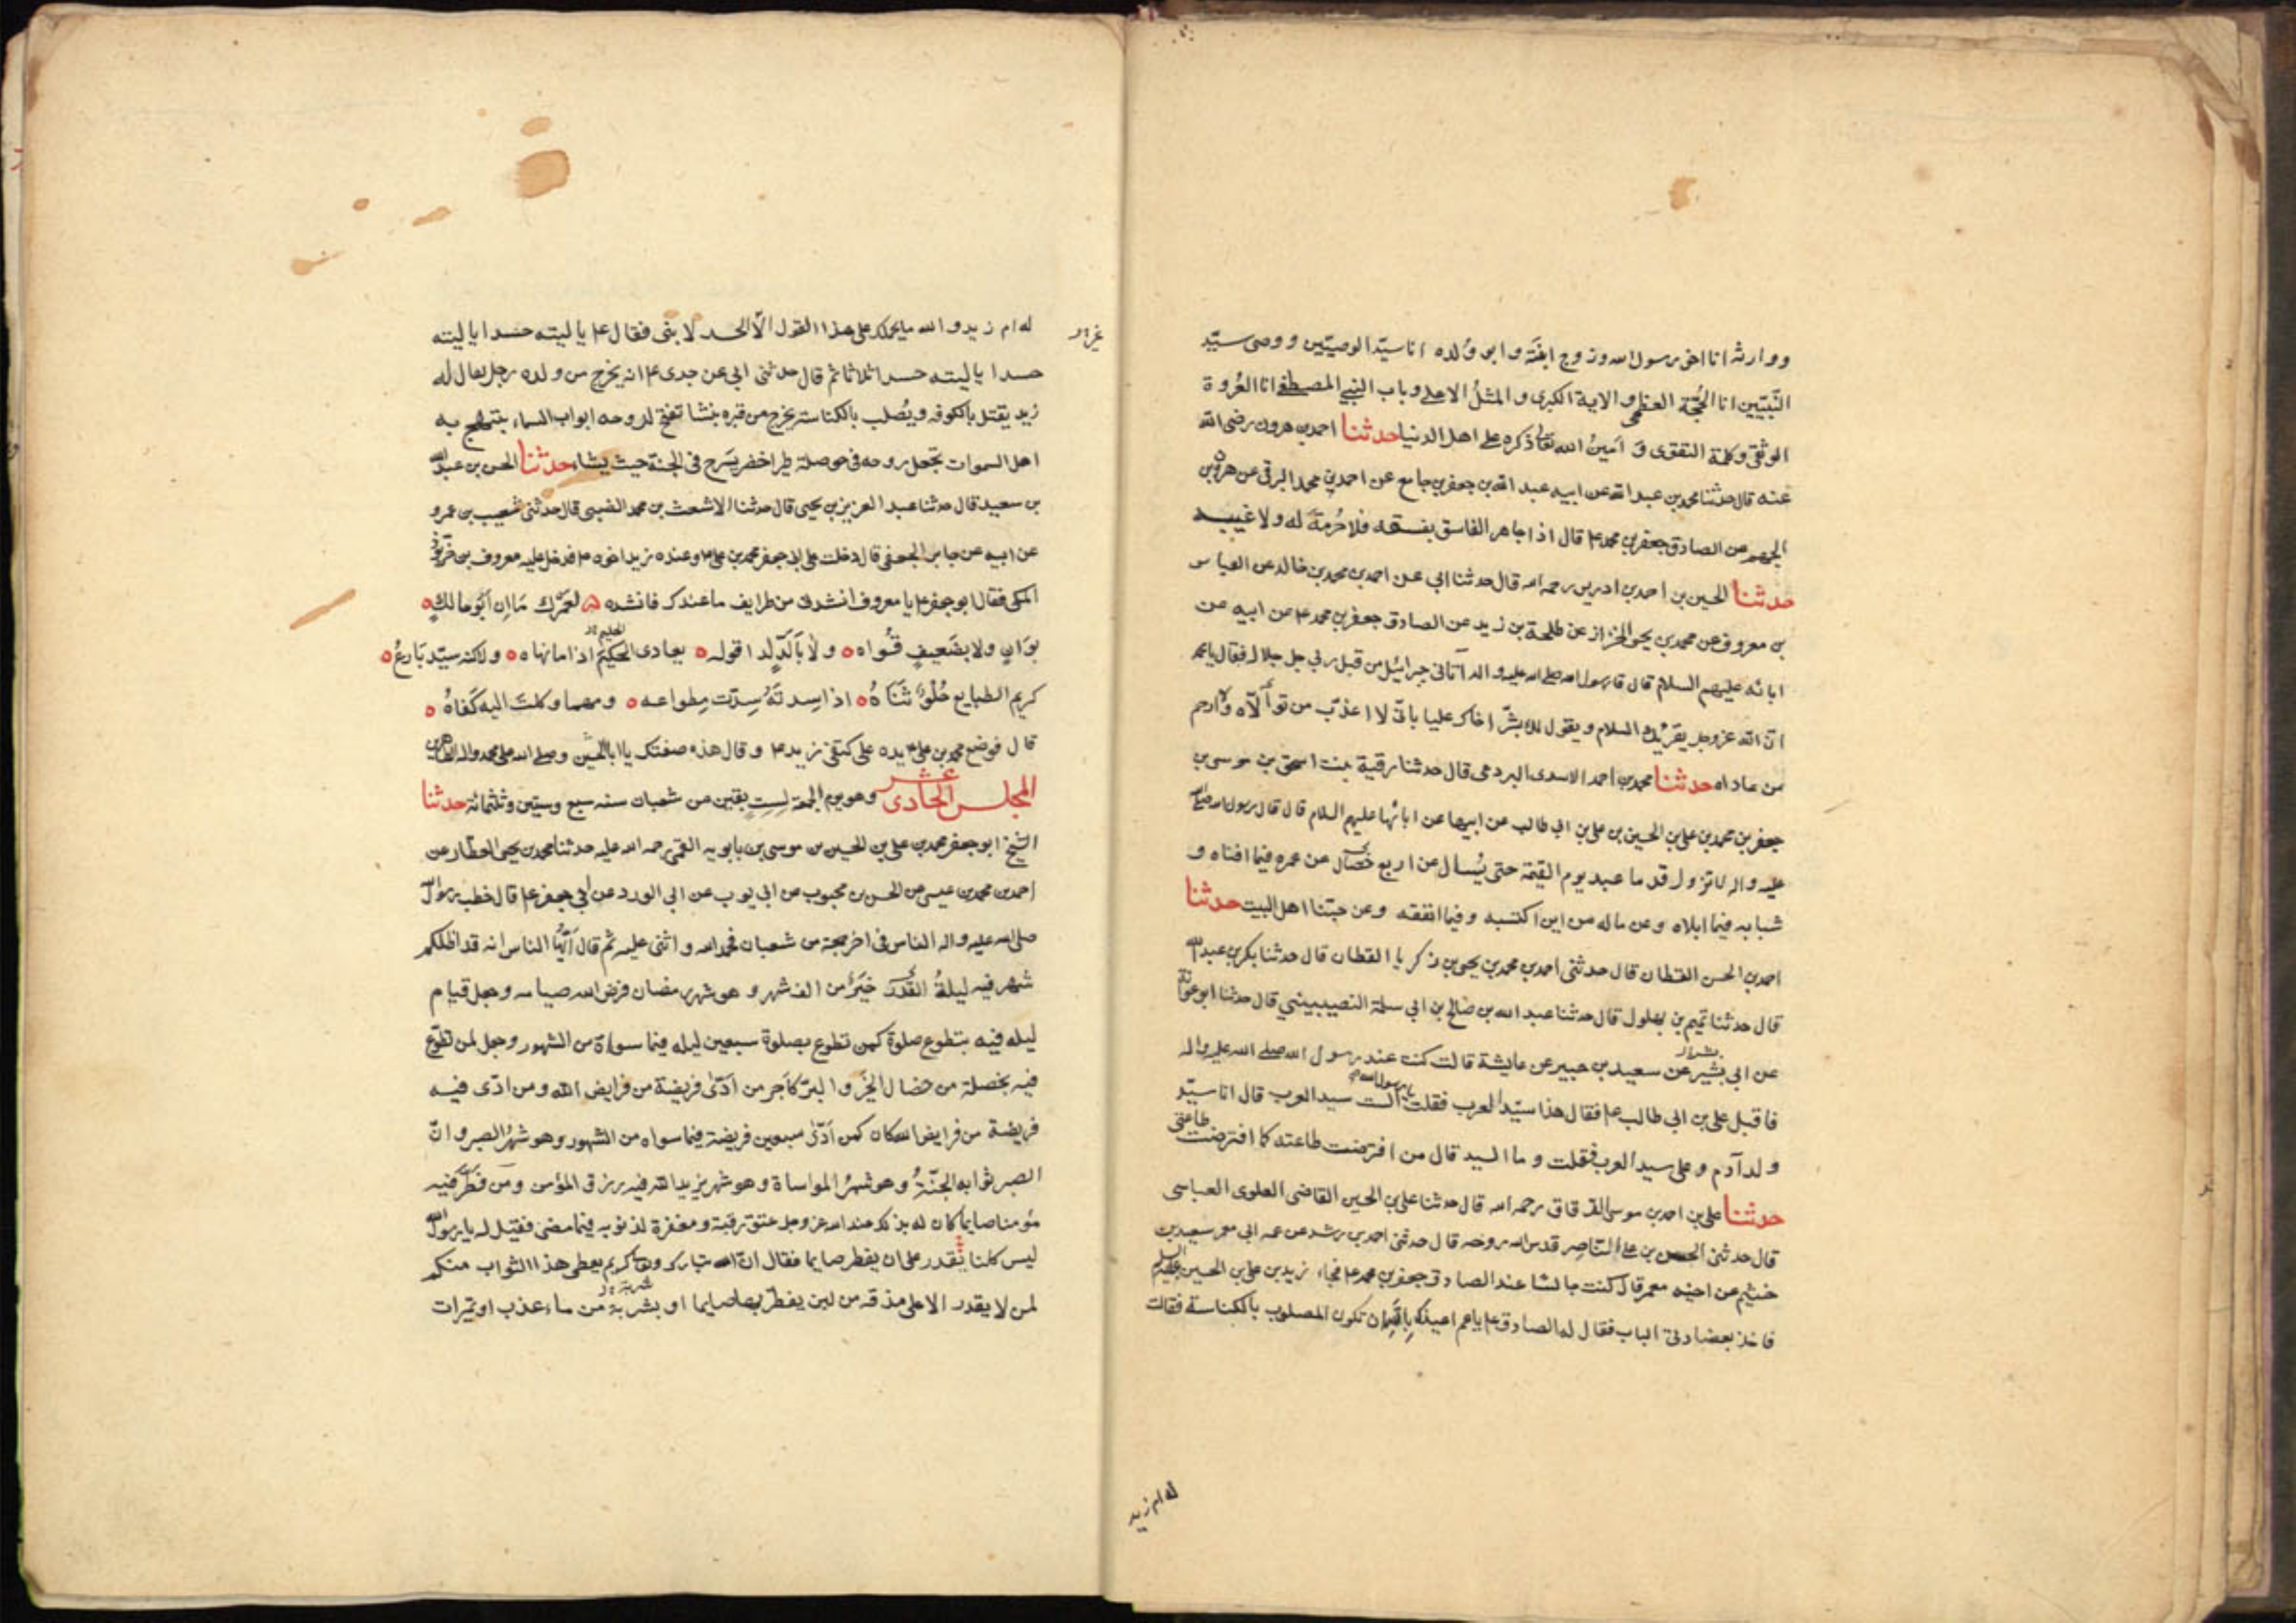 ووارثه انا اخی رسول الله وزوج ابنته وابو ولده انا سیّد الوصیّین ووصی سیّد
النّبیّین انا الحُجّة العظمی والایة الکبری والمثلُ الاعلی وباب النبی المصطفی انا العُروة
الوثقی وکلمة التقوی وَ اَمینُ الله تعالی ذکره علی اهل الدنیا حدثنا احمد بن هرون رضی الله
عنه قال حدثنا محمد بن عبد الله عن ابیه عبد الله بن جعفر بن جامع عن احمد بن محمد البرقی عن هرون بن
الجهم عن الصادق جعفر بن محمد ع قال اذا جاهر الفاسق بفسقه فلا حُرمة له ولا غیبه
حدثنا الحسین بن احمد بن ادریس رحمه الله قال حدثنا ابی عن احمد بن محمد بن خالد عن العباس
بن معروف عن محمد بن یحیی الخزاز عن طلحة بن زید عن الصادق جعفر بن محمد ع عن ابیه عن
ابائه علیهم السلام قال قال رسول الله صلی الله علیه واله آتانی جبرائیل من قبل ربی جل جلاله فقال یا محمد
انّ الله عز وجل یقرئک السلام ویقول لک بشّر اخاک علیا بانّی لا اعذّب من تولّاه ولا ارحم
من عاداه حدثنا محمد بن احمد الاسدی البردعی قال حدثنا رقیة بنت اسحق بن موسی بن
جعفر بن محمد بن علی بن الحسین بن علی بن ابی طالب عن ابیها عن ابائها علیهم السلام قال قال رسول الله صلی الله
علیه واله لا تزول قدما عبد یوم القیمة حتی یُسأل عن اربع خصال عن عمره فیما افناه و
شبابه فیما ابلاه وعن ماله من این اکتسبه وفیما انفقه وعن حبّنا اهل البیت حدثنا
احمد بن الحسن القطان قال حدثنی احمد بن محمد بن یحیی بن زکریا القطان قال حدثنا بکر بن عبد الله
قال حدثنا تمیم بن بهلول قال حدثنا عبد الله بن صالح بن ابی سلمة النصیبینی قال حدثنا ابو عوانة
عن ابی بشیر عن سعید بن جبیر عن عایشة قالت کنت عند رسول الله صلی الله علیه واله
فاقبل علی بن ابی طالب ع فقال هذا سیّد العرب فقلت یا رسول الله الست سید العرب قال انا سیّد
ولد آدم وعلی سید العرب فقلت وما السید قال من افترضت طاعته کما افترضت طاعتی
حدثنا علی بن احمد بن موسی الدقاق رحمه الله قال حدثنا علی بن الحسین القاضی العلوی العباسی
قال حدثنی الحسن بن علی الناصر قدس الله روحه قال حدثنی احمد بن رشد عن عمه ابی معمر سعید بن
خثیم عن اخیه معمر قال کنت جالسًا عند الصادق جعفر بن محمد ع فجاء زید بن علی بن الحسین علیهم السلم
فاخذ بعضادتی الباب فقال له الصادق ع یا عم اعیذک بالله ان تکون المصلوب بالکناسة فقالت
له ام زید
له ام زید والله ما یحملک علی هذا القول الّا الحسد لابنی فقال ع یا لیته حسدا یا لیته
حسدا یا لیته حسدا ثلاثا ثم قال حدثنی ابی عن جدی ع انه یخرج من ولده رجل یقال له
زید یقتل بالکوفه ویُصلب بالکناسة یخرج من قبره نبشا تفتح لروحه ابواب السماء یبتهج به
اهل السموات تجعل روحه فی حوصلة طیر اخضر یَسرح فی الجنة حیث یشاء حدثنا الحسن بن عبد الله
بن سعید قال حدثنا عبد العزیز بن یحیی قال حدثنا الاشعث بن محمد الضبی قال حدثنی شعیب بن عمرو
عن ابیه عن جابر الجعفی قال دخلت علی ابی جعفر محمد بن علی ع وعنده زید اخوه ع فدخل علیه معروف بن خرّبوذ
المکی فقال ابو جعفر ع یا معروف انشدنی من طرایف ما عندک فانشده لعمرک مَا اِن ابُو مالکٍ
بوَانٍ ولا بضَعیفٍ قُواه ولا بألدّ لدا قوله یعادی الحکیم اذا ما نهاه ولکنه سیّد بَارعُ
کریم الطبایع حُلوٌ ثَنَاهُ اذا سِدتَه سِدت مِطواعه ومهما وکلتَ الیه کَفاهُ
قال فوضع محمد بن علی ع یده علی کتفی زید ع وقال هذه صفتک یا ابا الحسین وصلی الله علی محمد واله الطاهرین
المجلس الحادی عشر وهو یوم الجمعة لست بقین من شعبان سنه سبع وستین وثلثمائة حدثنا
الشیخ ابو جعفر محمد بن علی بن الحسین بن موسی بن بابویه القمی رحمه الله علیه حدثنا محمد بن یحیی العطار عن
احمد بن محمد بن عیسی عن الحسن بن محبوب عن ابی ایوب عن ابی الورد عن ابی جعفر ع قال خطب رسول الله
صلی الله علیه واله الناس فی اخر جمعة من شعبان فحمد الله واثنی علیه ثم قال اَیّها الناس انه قد اظلکم
شهر فیه لیلةُ القَدر خیرٌ من الف شهر وهو شهر رمضان فرض الله صیامه وجعل قیام
لیله فیه بتطوع صلوة کمن تطوع بصلوة سبعین لیله فیما سواه من الشهور وجعل لمن تطوّع
فیه بخصلة من خصال الخیر والبرّ کاَجر من اَدّی فریضة من فرایض الله ومن ادّی فیه
فریضة من فرایض الله کان کمن اَدّی سبعین فریضة فیما سواه من الشهور وهو شهرُ الصبر وانّ
الصبر ثوابه الجنّةُ وهو شهرُ المواساة وهو شهر یزید الله فیه رزق المؤمن ومَن فطّر فیه
مؤمنا صایما کان له بذلک عند الله عز وجل عتق رقبة ومغفرة لذنوبه فیما مضی فقیل له یا رسول الله
لیس کلنا نقدر علی ان یفطر صایما فقال ان الله تبارک وتعالی کریم یعطی هذا الثواب منکم
لمن لا یقدر الا علی مذقه من لبن یفطّر بها صایما او بشربة من ماء عذب او تمیرات